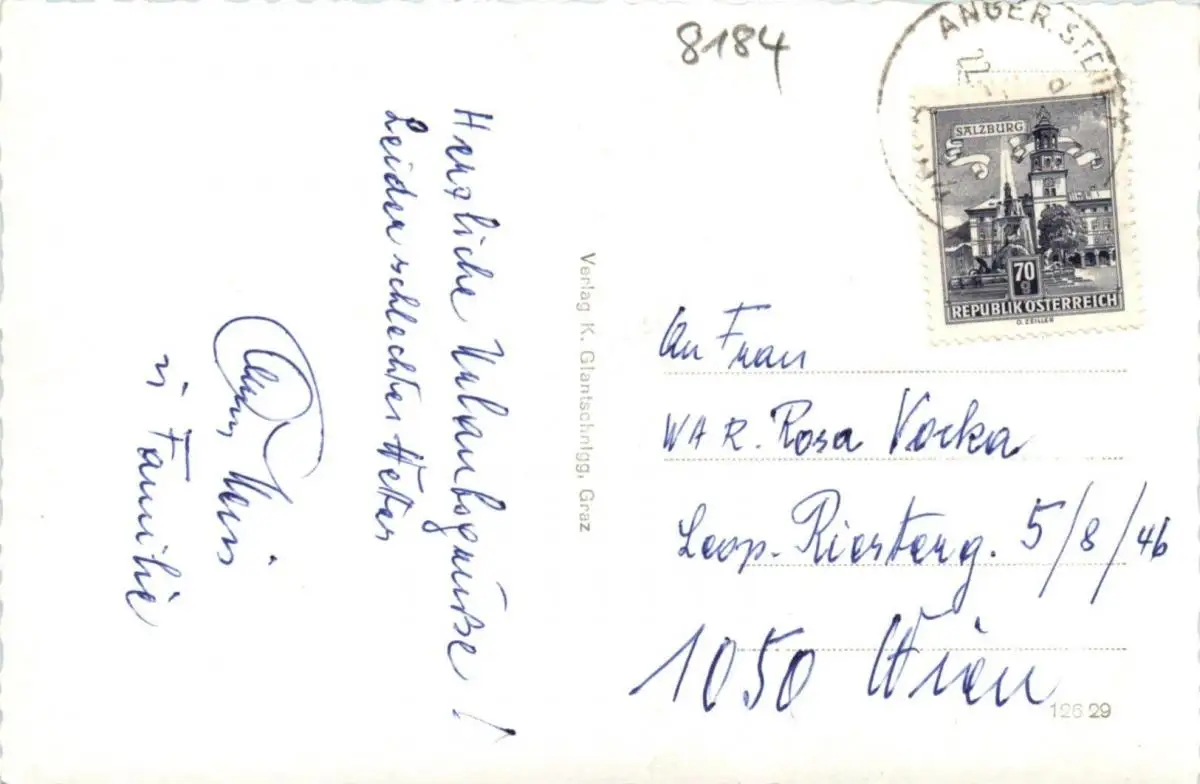 8184
ANGER, STEI
SALZBURG
70
g
REPUBLIK ÖSTERREICH
O. ZEILLER
Herzliche Urlaubsgrüße!
Leider schlechtes Wetter
u. Familie
Verlag K. Glantschnigg, Graz
An Frau
WAR. Rosa Vocka
Leop- Risterg. 5/8/46
1050 Wien
126 29